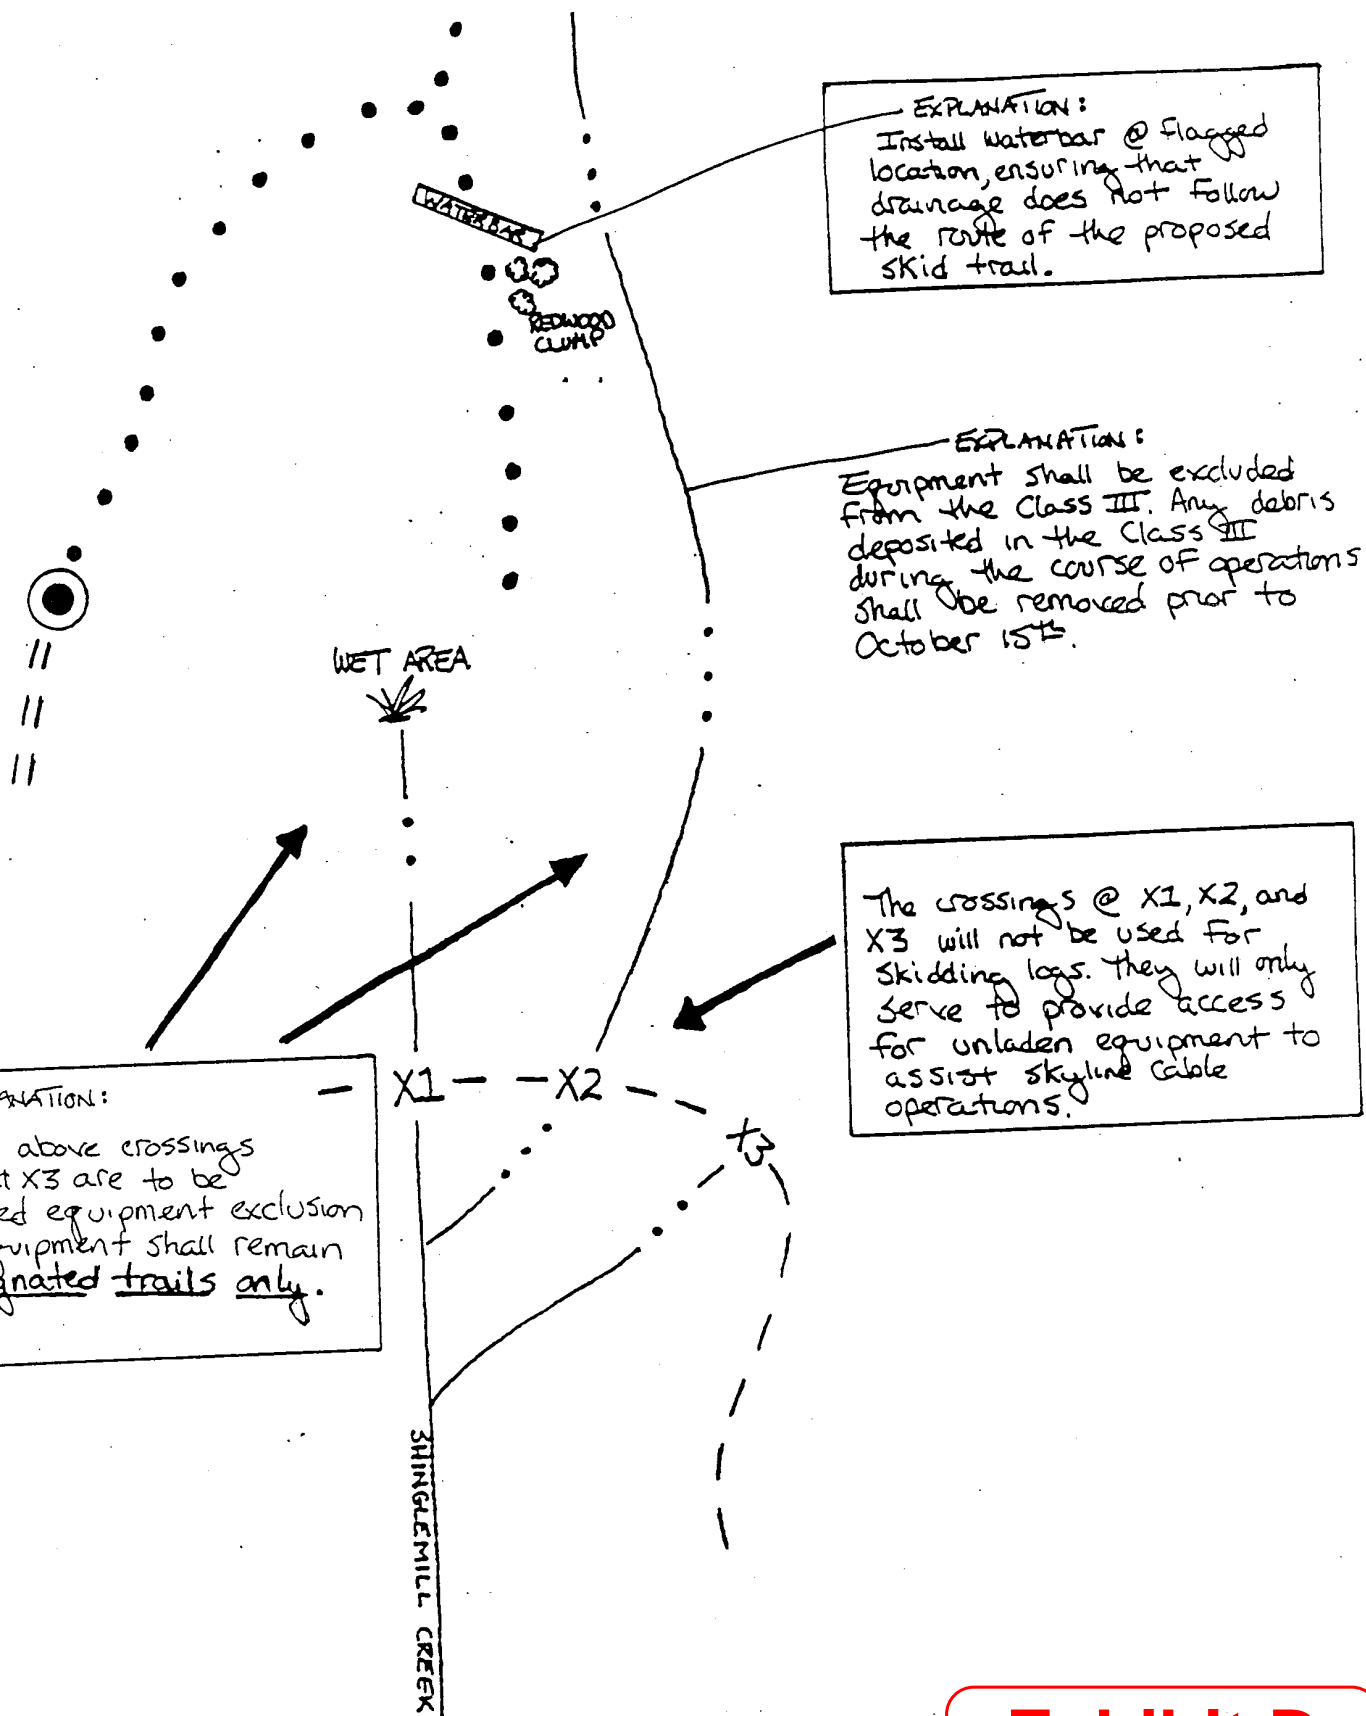 EXPLANATION:
Install waterbar @ flagged
location, ensuring that
drainage does not follow
the route of the proposed
skid trail.
WATERBAR
REDWOOD
CLUMP
EXPLANATION:
Equipment shall be excluded
from the Class III. Any debris
deposited in the Class III
during the course of operations
shall be removed prior to
October 15th.
WET AREA
The crossings @ X1, X2, and
X3 will not be used for
skidding logs. They will only
serve to provide access
for unladen equipment to
assist skyline cable
operations.
X1
X2
X3
ANATION:
above crossings
X3 are to be
ed equipment exclusion
uipment shall remain
gnated trails only.
SHINGLEMILL CREEK